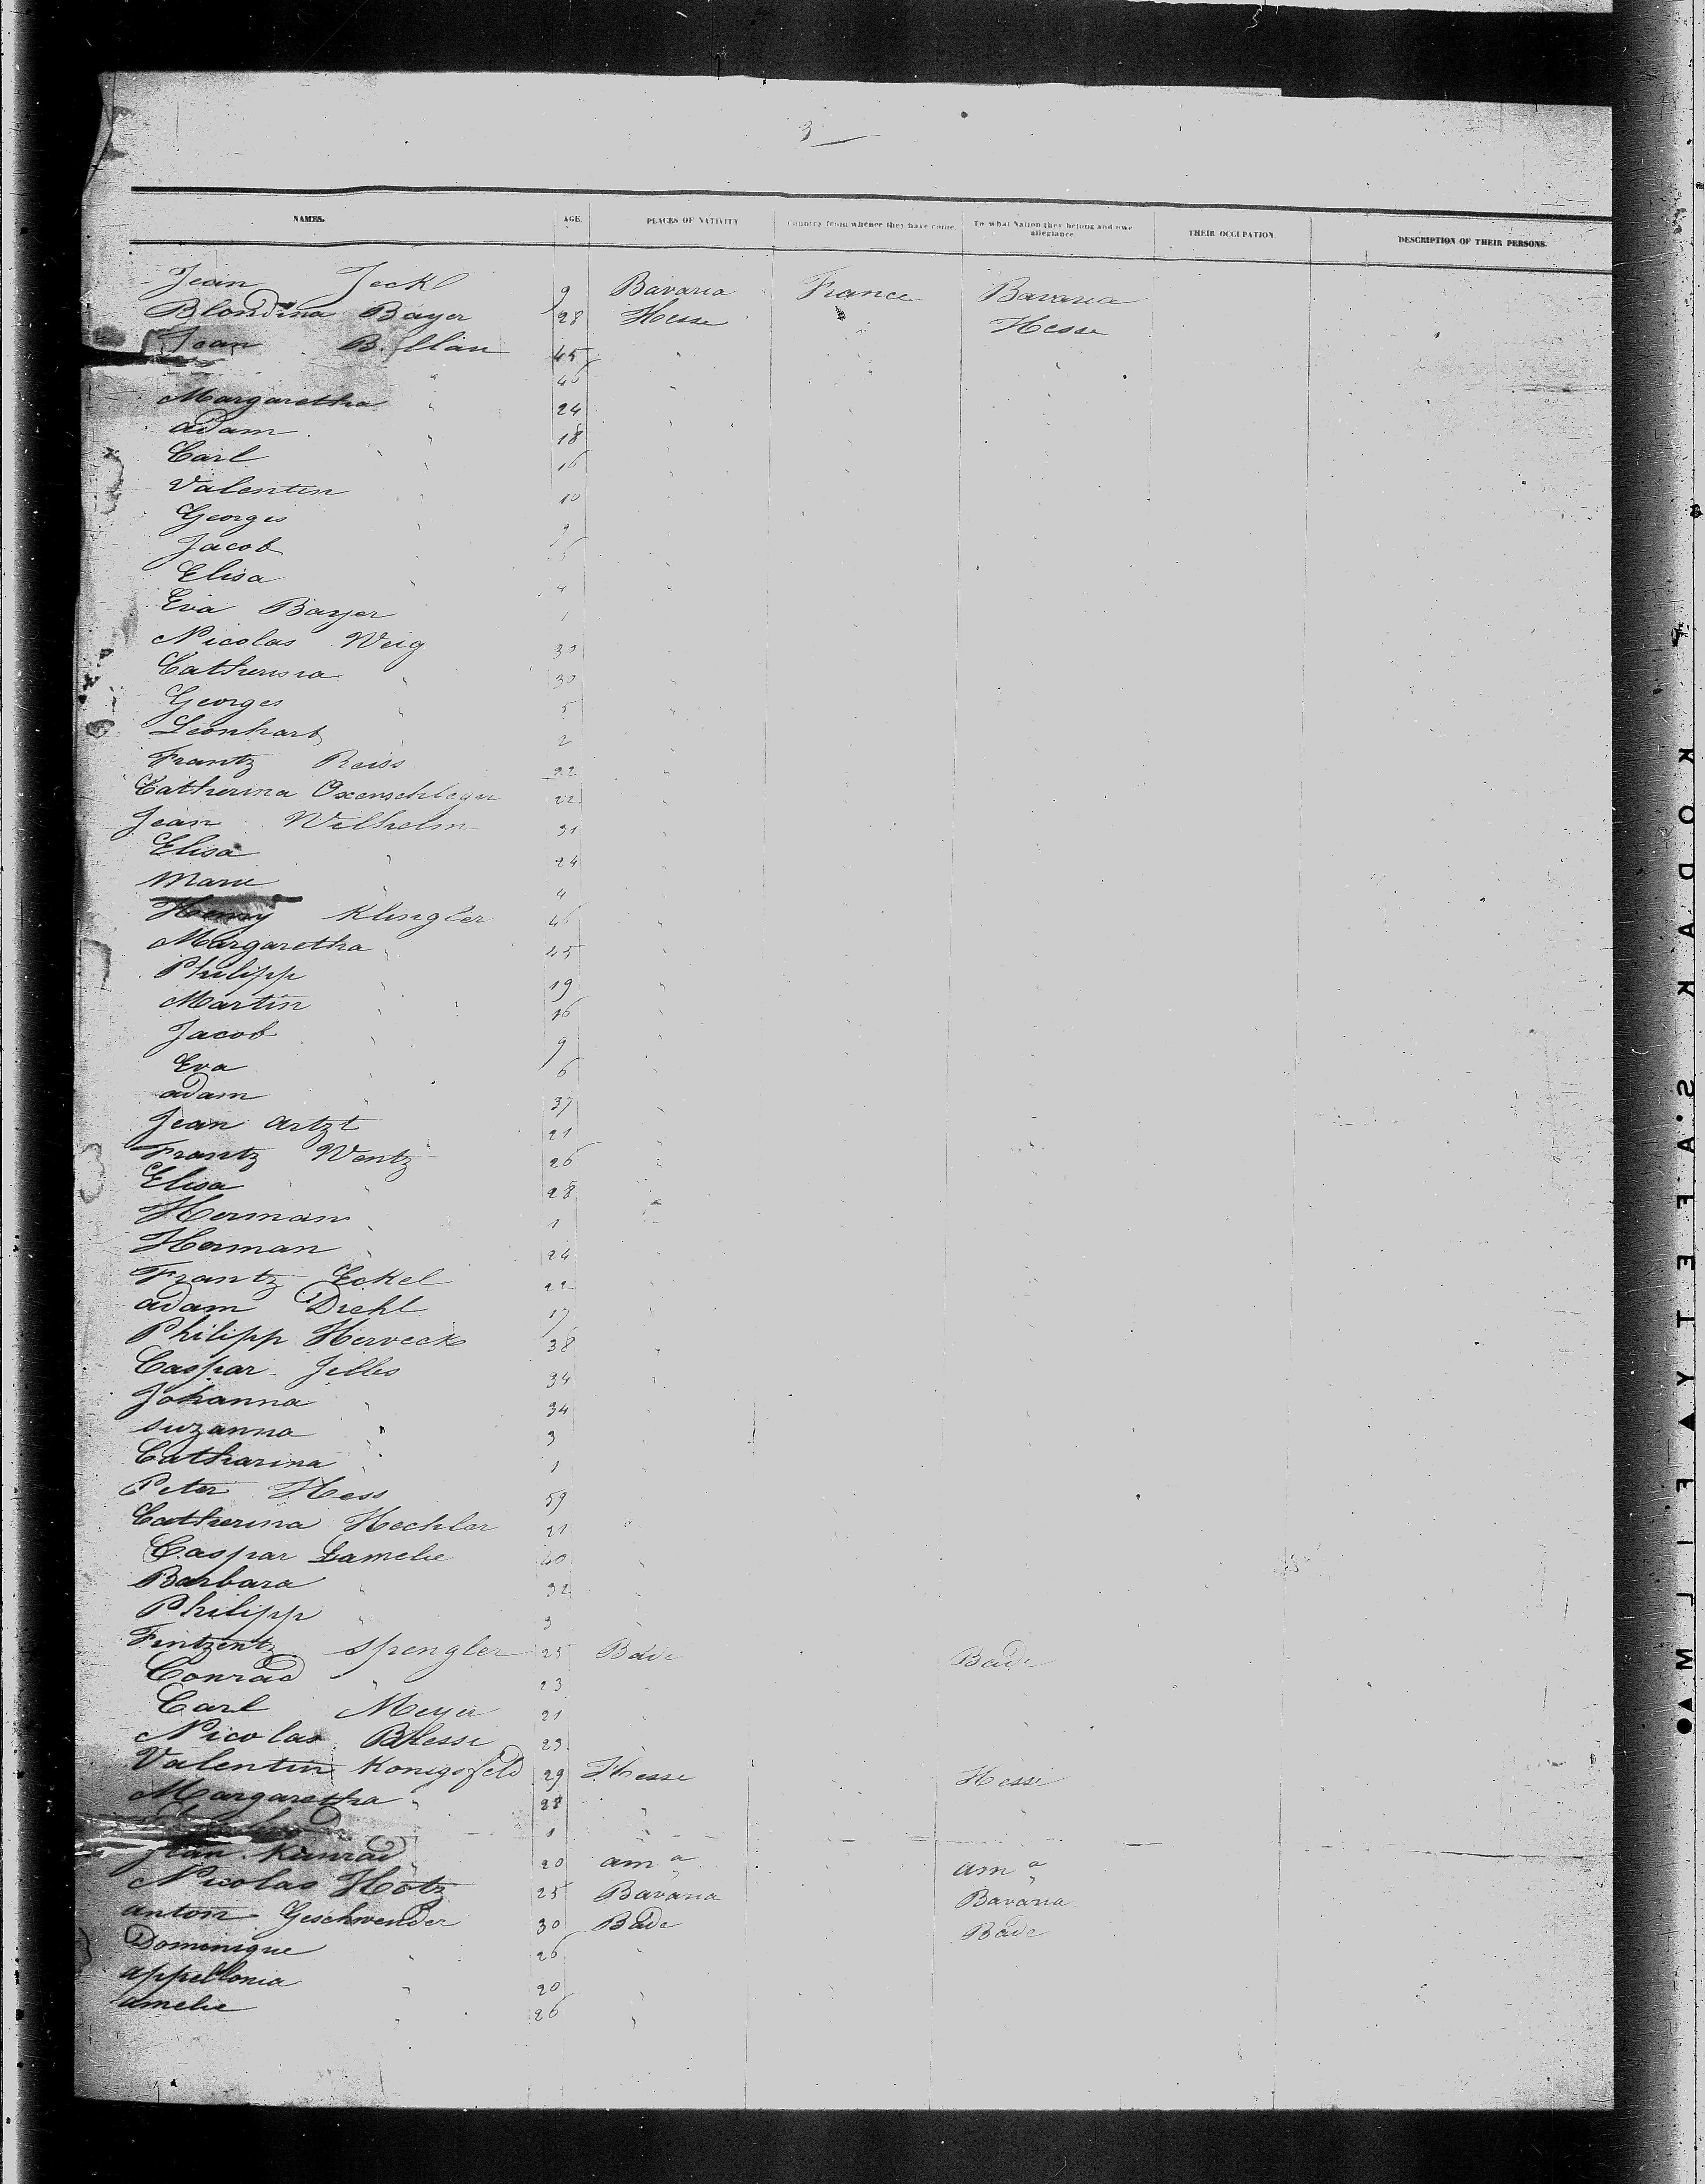 3
NAMES. AGE PLACES OF NATIVITY Country from whence they have come. To what Nation they belong and owe allegiance THEIR OCCUPATION. DESCRIPTION OF THEIR PERSONS.
Jean Jeckl 9 Bavaria France Bavaria
Blondina Bayer 28 Hesse " Hesse
Jean 45 "
" 46 "
Margaretha " 24
adam " 18 "
Carl " 16
Valentin " 10
Georges " 9
Jacob 6
Elisa " 4
Eva Bayer 1
Nicolas Weig 30
Catherina " 30
Georges " 5
Leonhart " 2
Frantz Reiss 22
Catherina Oxenschleger 22
Jean Wilhelm 31
Elisa " 24
Marie " 4
Henry Klingler 46
Margaretha " 45
Philipp " 19
Martin " 16
Jacob " 9
Eva " 6
adam " 37
Jean Artzt 21
Frantz Wentz 26
Elisa " 28
Herman " 1
Herman " 24
Frantz Eckel 22
adam Diehl 17
Philipp Herveck 38
Caspar Jelles 34
Johanna " 34
suzanna " 3
Catharina " 1
Peter Hess 59
Catherina Hechler 21
Caspar Lamelie 40
Barbara " 32
Philipp " 3
Fintzentz Spengler 25 Bade Bade
Conrad " 23
Carl Meyer 21
Nicolas Blessi 23
Valentin Konigsfeld 29 Hesse Hesse
Margaretha " 28 "
1 "
Jean Kunrad 20 am a am a
Nicolas Hotz 25 Bavaria Bavaria
anton Geschwender 30 Bade Bade
Dominique " 26 "
appellonia " 20 "
amelie " 26 "